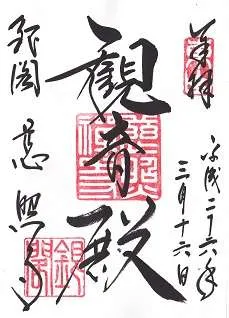 奉拝
平成二十六年
三月十六日
觀音殿
銀閣 慈照寺
銀閣